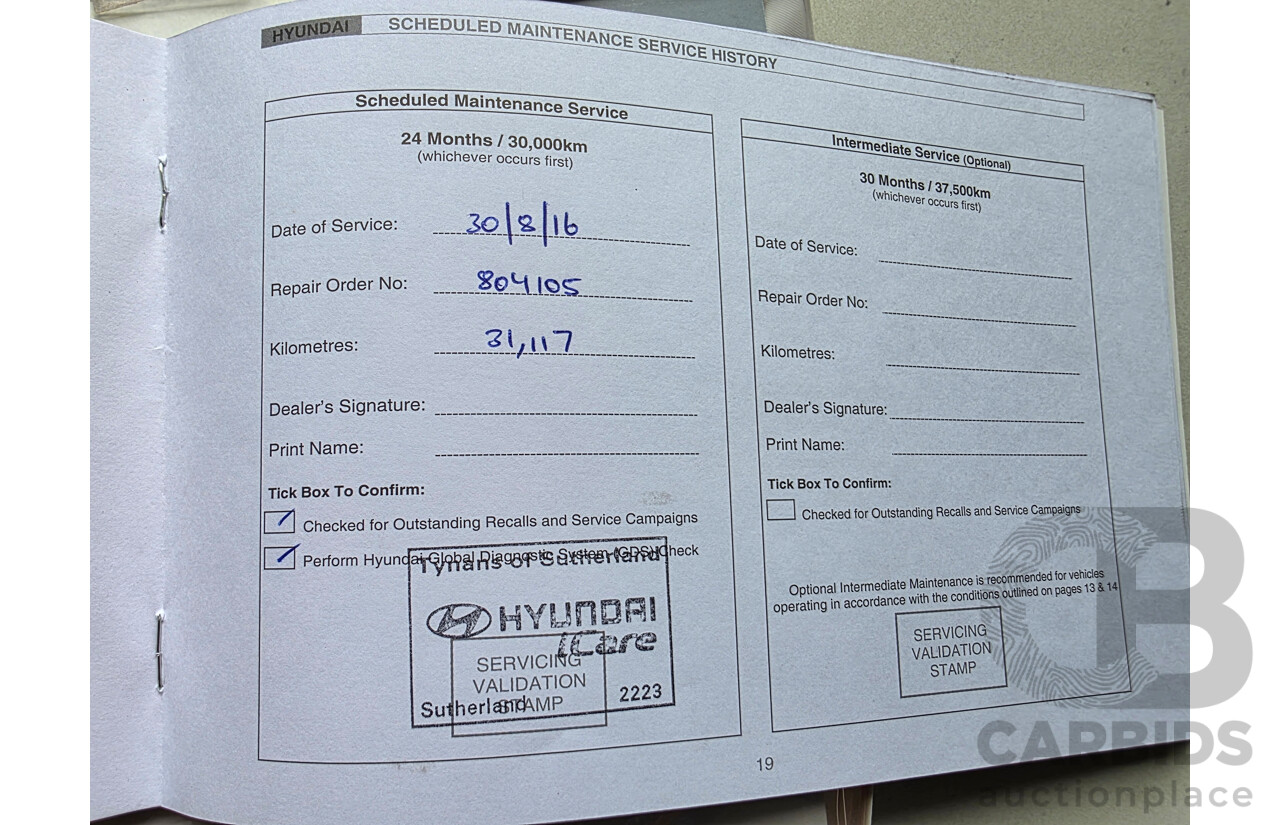 HYUNDAI SCHEDULED MAINTENANCE SERVICE HISTORY
Scheduled Maintenance Service
24 Months / 30,000km
(whichever occurs first)
Date of Service: 30/8/16
Repair Order No: 804105
Kilometres: 31,117
Dealer's Signature:
Print Name:
Tick Box To Confirm:
Checked for Outstanding Recalls and Service Campaigns
Perform Hyundai Global Diagnostic System (GDS) Check
Tynans of Sutherland
HYUNDAI
iCare
SERVICING
VALIDATION
STAMP
Sutherland 2223
Intermediate Service (Optional)
30 Months / 37,500km
(whichever occurs first)
Date of Service:
Repair Order No:
Kilometres:
Dealer's Signature:
Print Name:
Tick Box To Confirm:
Checked for Outstanding Recalls and Service Campaigns
Optional Intermediate Maintenance is recommended for vehicles
operating in accordance with the conditions outlined on pages 13 & 14
SERVICING
VALIDATION
STAMP
19
CB
CARBIDS
auctionplace